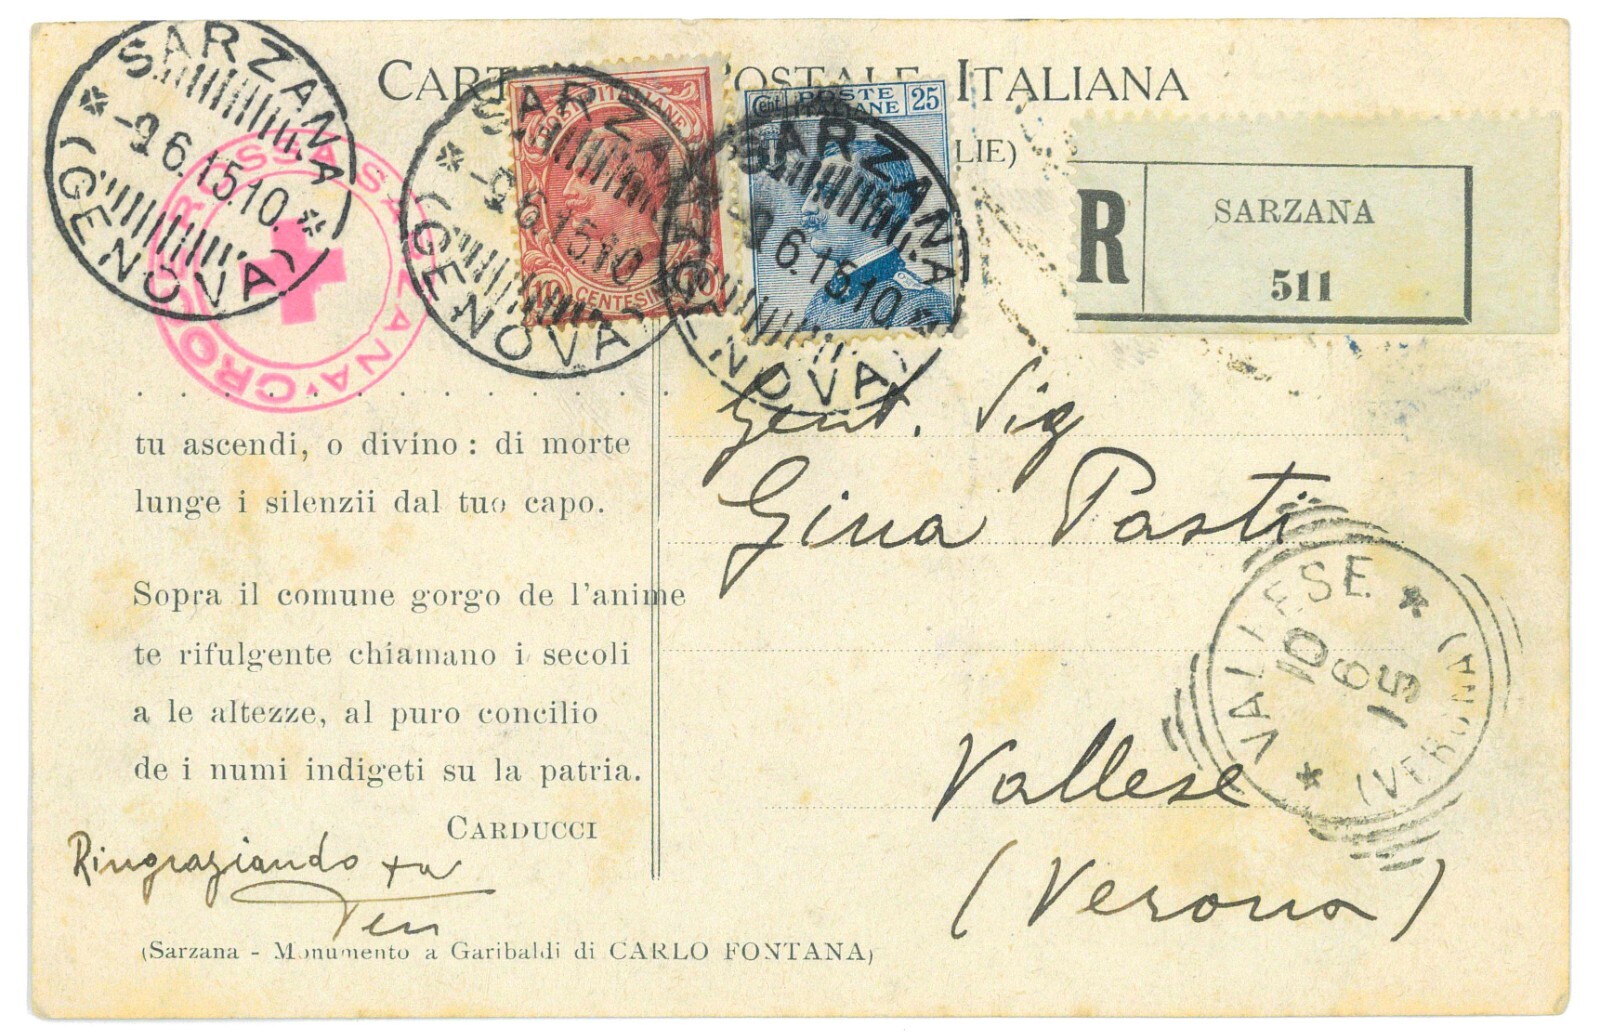 CARTOLINA POSTALE ITALIANA
LIE)
SARZANA
-9.6.15.10.
(GENOVA)
CROCE ROSSA SARZANA
SARZANA
-9.6.15.10
(GENOVA)
POSTE ITALIANE
10 CENTESIMI 10
SARZANA
-9.6.15.10.
(GENOVA)
Cent POSTE ITALIANE 25
R
SARZANA
511
tu ascendi, o divino : di morte
lunge i silenzii dal tuo capo.
Sopra il comune gorgo de l'anime
te rifulgente chiamano i secoli
a le altezze, al puro concilio
de i numi indigeti su la patria.
CARDUCCI
Ringraziando
(Sarzana - Monumento a Garibaldi di CARLO FONTANA)
Gent. Sig
Gina Pasti
Vallese
(Verona)
VALLESE
10
6
15
(VERONA)